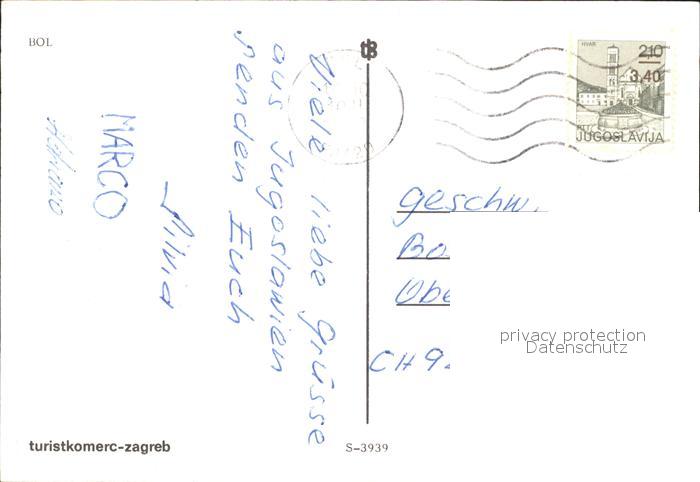 BOL
Viele liebe Grüsse
aus Jugoslawien
senden Euch
Silvia
MARCO
HVAR
2,10
3,40
JUGOSLAVIJA
geschw.
Bo
Obe
CH 9.
privacy protection
Datenschutz
turistkomerc-zagreb
S-3939